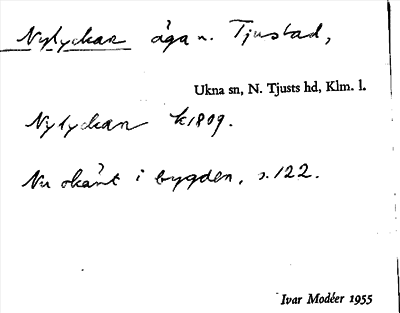 Nylyckan äga n. Tjustad,
Ukna sn, N. Tjusts hd, Klm. l.
Nylyckan k1809.
Nu okänt i bygden, s. 122.
Ivar Modéer 1955